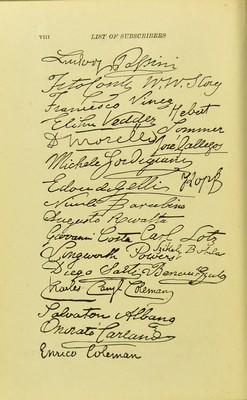 VIII LIST OF SUBSCRIBERS
Ludwig Passini
Tito Conti W. W. Story
Francesco Vinea
Elihu Vedder Hebert
D Morelli Sommer
José Gallego
Michele Gordigiani
Edou de Gellis Kopf
Nunzio Barabino
Augusto Rivalta
Giovanni Costa Carl Lotz
Yngworth Powers
Diego Sarti
Charles Caryl Coleman
Salvatore Albano
Onorato Carlandi
Enrico Coleman